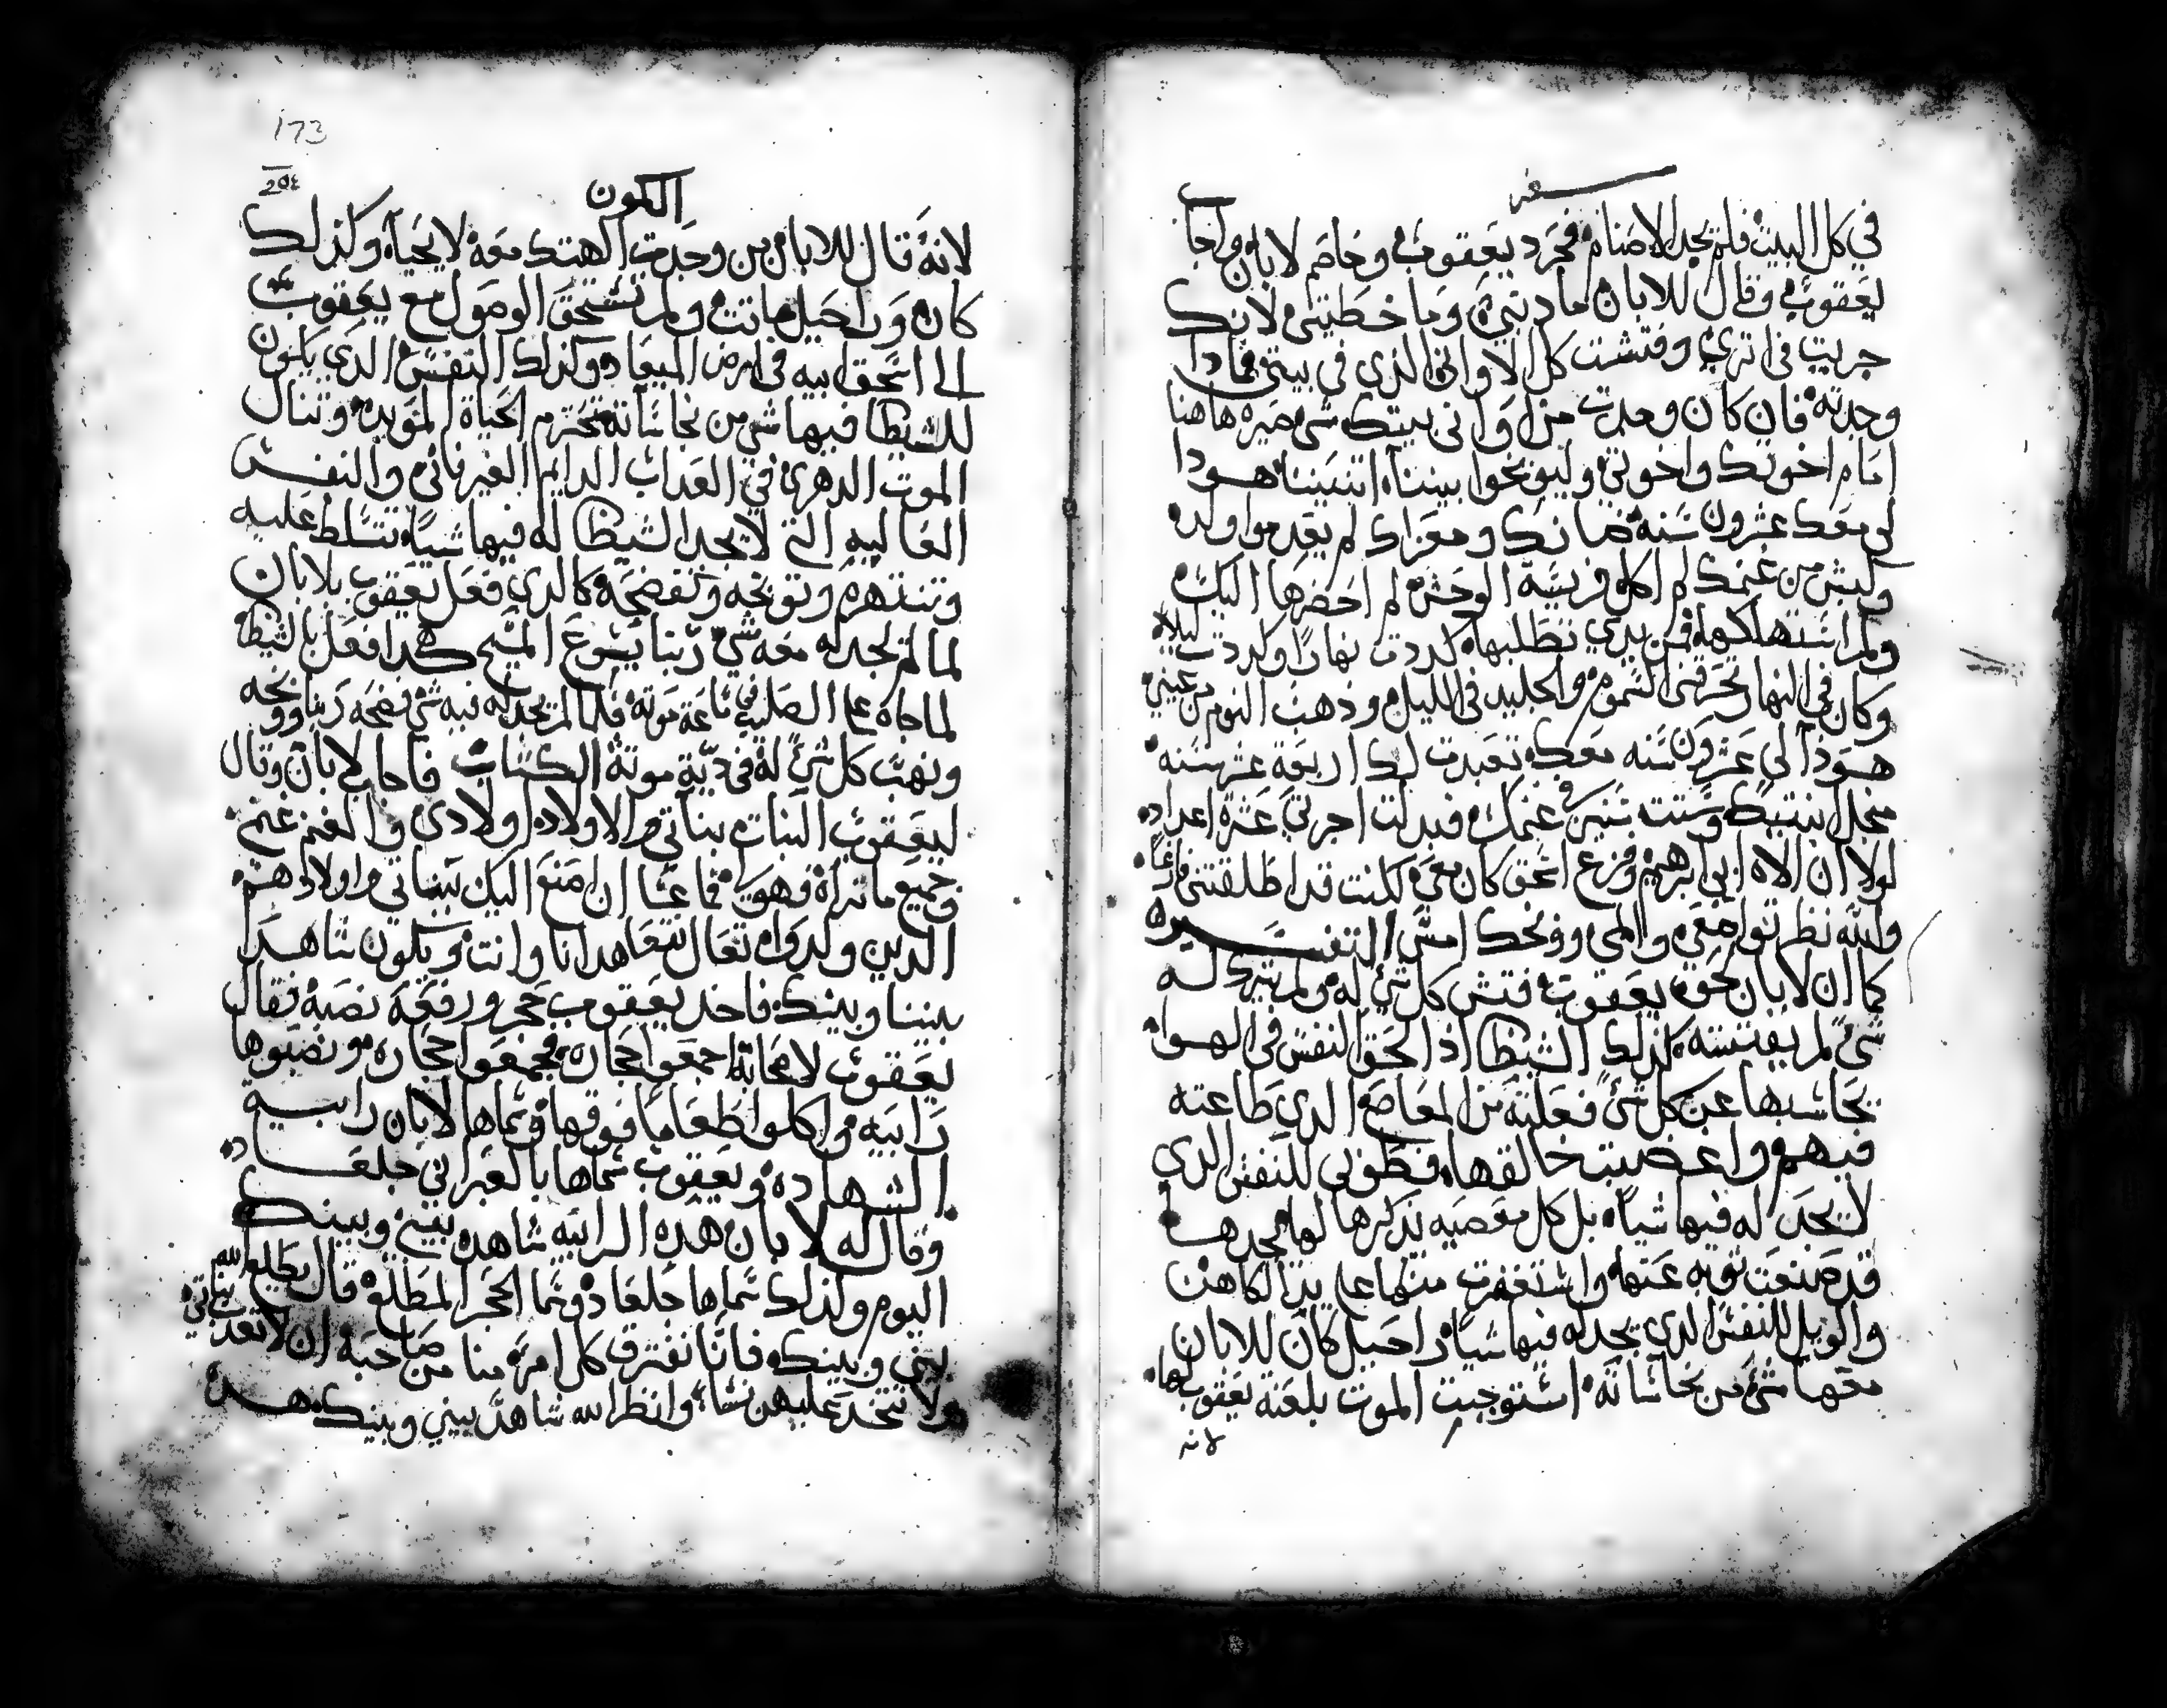 سفر
في كل البيت فلم يجد الاصنام فحرد يعقوب وخاصم لابان واجاب
يعقوب وقال للابان ما دنبي وما خطيتي لانك
جريت في اتري وفتشت كل الاواني الذي في بيتي فمادا
وجدته فان كان وجدت من اواني بيتك شي صيره هاهنا
امام اخوتك واخوتي وليوبخوا بيننا اتنيننا هودا
لي معك عشرون سنه ضانك ومعزاك لم يعدموا ولد
وكبش من غنمك لم اكل فريسة الوحش لم احضرها اليك
ولم استهلكها فمن يدي تطلبها كدت نهارا وكدت ليلا
وكان في النهار تحرقني السموم والجليد في الليل وذهب النوم من عيني
هودا لي عشرون سنه معك تعبدت لك اربعة عشر سنه
بنتيك وست سنين غنمك فبدلت اجرتي عشرة اعداد
لولا ان الاه ابي ابرهيم وفزع اسحق كان معي لكنت قد اطلقتني فارغا
والله نظر تواضعي والمي ووبخك امس التفسير
كما ان لابان لحق يعقوب فتش كل شي له ولم يترك له
شي لم يفتشه كذلك الشيطان اذا لحق النفس في الهوا
يحاسبها عن كل شي فعلته من المعاصي الدي طاعته
فيهم واغضبت خالقها فطوبى للنفس الدي
لا يجد له فيها شيا بل كل معصيه يدكرها لها يجدها
قد صنعت توبه عنها واستغفرت منها على يد الكاهن
والويل للنفس الدي يجد له فيها شيا راحيل كان للابان
معها شي من نجاساته استوجبت الموت بلعنة يعقوب لها
لانه
173
الكون
لانه قال للابان من وجدت الهتك معه لا يحيا وكذلك
كان وراحيل ماتت ولم تستحق الوصول مع يعقوب
الى اسحق ابيه في ارض الميعاد وكذلك النفس الدي يكون
للشيطان فيها شي من نجاساته تحترم الحياة الموبده وتنال
الموت الدهري في العداب الدايم الغير فاني والنفس
الغاليه التي لا يجد الشيطان له فيها شيا تتسلط عليه
وتنتهره وتوبخه وتفضحه كالدي فعل يعقوب بلابان
لما لم يجد له معه شي ربنا يسوع المسيح هكدا فعل بالشيطان
لما جاه على الصليب في ساعة موته فلما لم يجد له فيه شي فضحه ربنا ووبخه
ونهب كل شي له في دية موته الكتاب فاجاب لابان وقال
ليعقوب البنات بناتي والاولاد اولادي والغنم غنمي
وجميع ما تراه فهو لي فما عسا ان اصنع اليك ببناتي واولادهم
الدين ولدوا تعال نتعاهد انا وانت ويكون شاهدا
بيننا وبينك فاخد يعقوب حجر ورفعه نصبه فقال
يعقوب لاصحابه اجمعوا حجاره فجمعوا حجاره ونصبوها
رابيه واكلوا طعاما فوقها وسماها لابان رابية
الشهاده ويعقوب سماها بالعبراني جلعاد
وقال له لابان هده الرابيه شاهده بيني وبينك
اليوم ولذلك سماها جلعاد وسما الحجر المطلع قال يطلع الله
بيني وبينك فاننا نفترق كل امره منا من صاحبه ان لا تعدب بناتي
ولا تتخد عليهن نسا وانظر الله شاهد بيني وبينك هدا